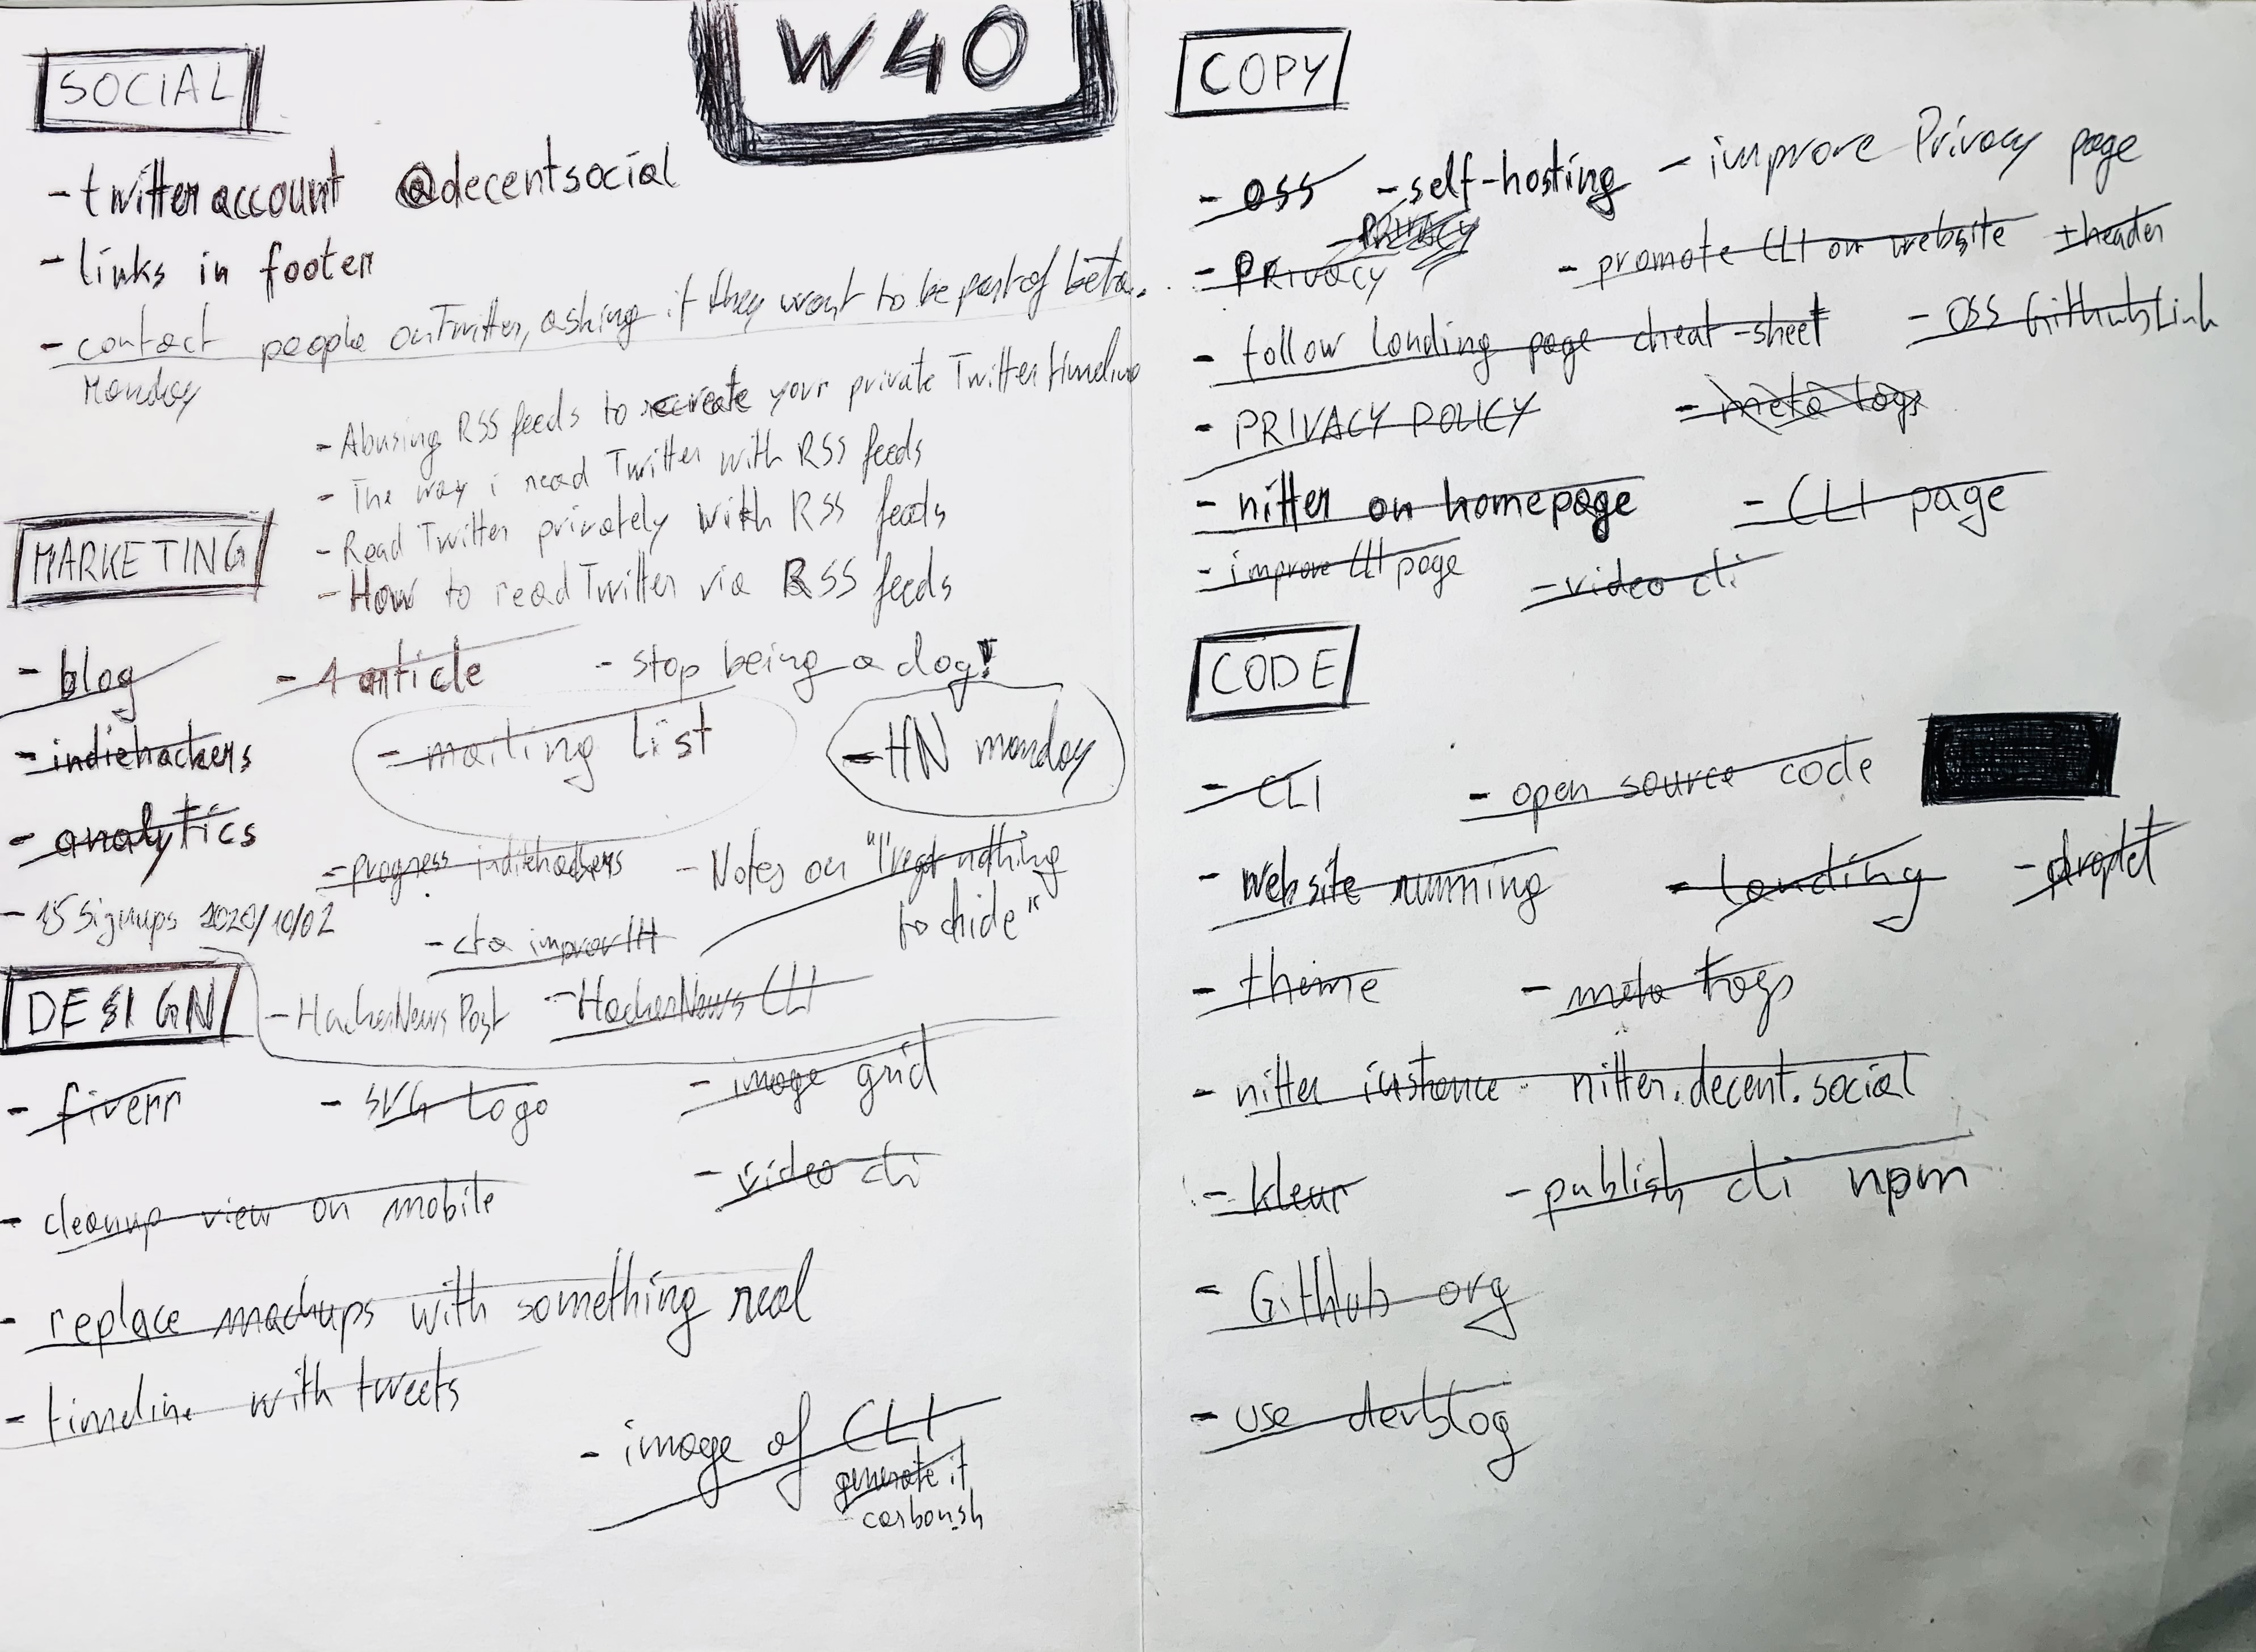 W40
SOCIAL
- twitter account @decentsocial
- links in footer
- contact people on Twitter, asking if they want to be part of beta.
Monday
- Abusing RSS feeds to recreate your private Twitter timeline
- The way i read Twitter with RSS feeds
- Read Twitter privately with RSS feeds
- How to read Twitter via RSS feeds
MARKETING
- blog - 1 article - stop being a dog!
- indiehackers - mailing list - HN monday
- analytics
- progress indiehackers - Notes on "I've got nothing
to hide"
- 15 signups 2020/10/02
- cta improv IH
- HackerNews Post - HackerNews CLI
DESIGN
- fiverr - SVG logo - image grid
- cleanup view on mobile - video cli
- replace mackups with something real
- timeline with tweets
- image of CLI
generate it
carbon.sh
COPY
- OSS - self-hosting - improve Privacy page
- PRIVACY
- PRIVACY - promote CLI on website + header
- follow landing page cheat-sheet - OSS Github Link
- PRIVACY POLICY - meta tags
- nitter on homepage - CLI page
- improve CLI page - video cli
CODE
- CLI - open source code
- website running - landing
- theme - meta tags
- nitter instance nitter.decent.social
- kleur - publish cli npm
- GitHub org
- use devblog